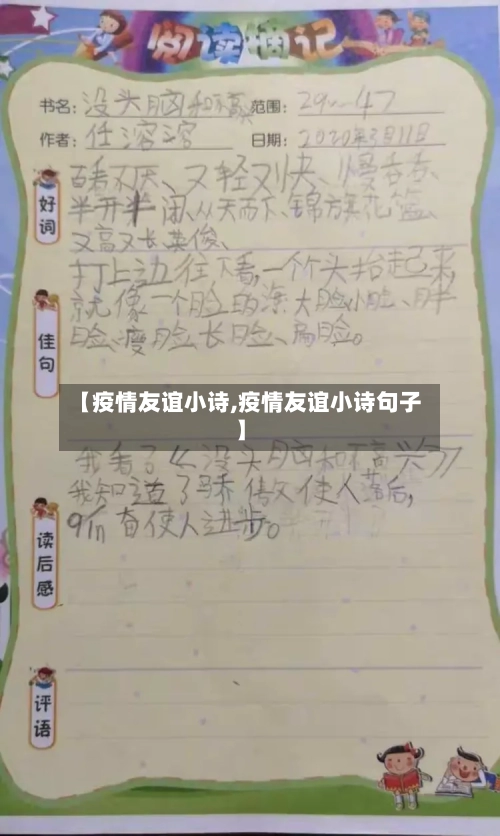 阅读摘记
书名: 没头脑和不高 范围: 29～47
作者: 任溶溶 日期: 2020年3月11日
好词
百看不厌、又轻又快、慢吞吞、
半开半闭、从天而下、锦旗花篮、
又高又长、英俊、
佳句
打上边往下看,一个个头抬起来,
就像一个脸的海、大脸小脸、胖
脸、瘦脸、长脸、扁脸。
【疫情友谊小诗,疫情友谊小诗句子
】
读后感
我看了《没头脑和不高兴》
我知道了骄傲使人落后,
qiān奋使人进步。
评语